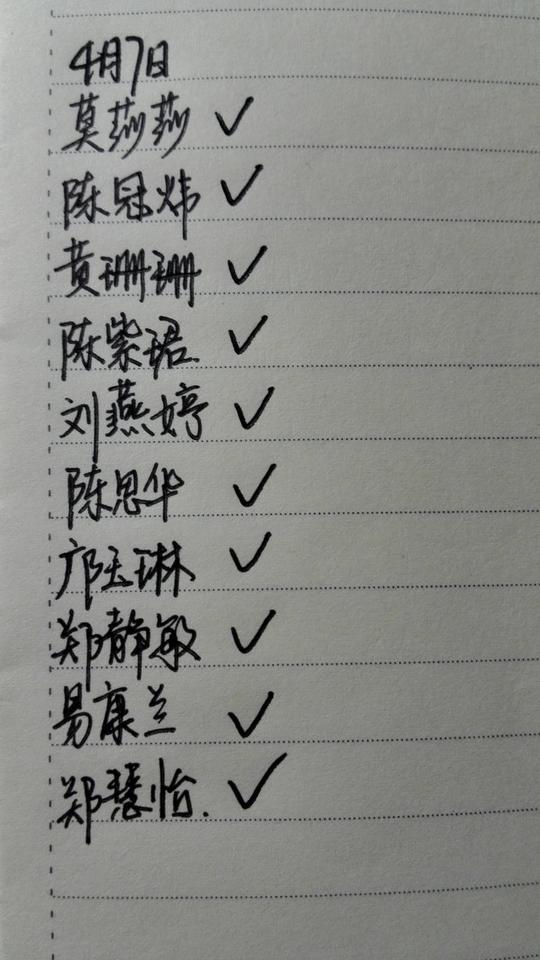 4月7日
莫莎莎 ✓
陈冠炜 ✓
黄珊珊 ✓
陈紫珺 ✓
刘燕婷 ✓
陈思华 ✓
邝玉琳 ✓
郑静敏 ✓
易康兰 ✓
郑慧怡. ✓